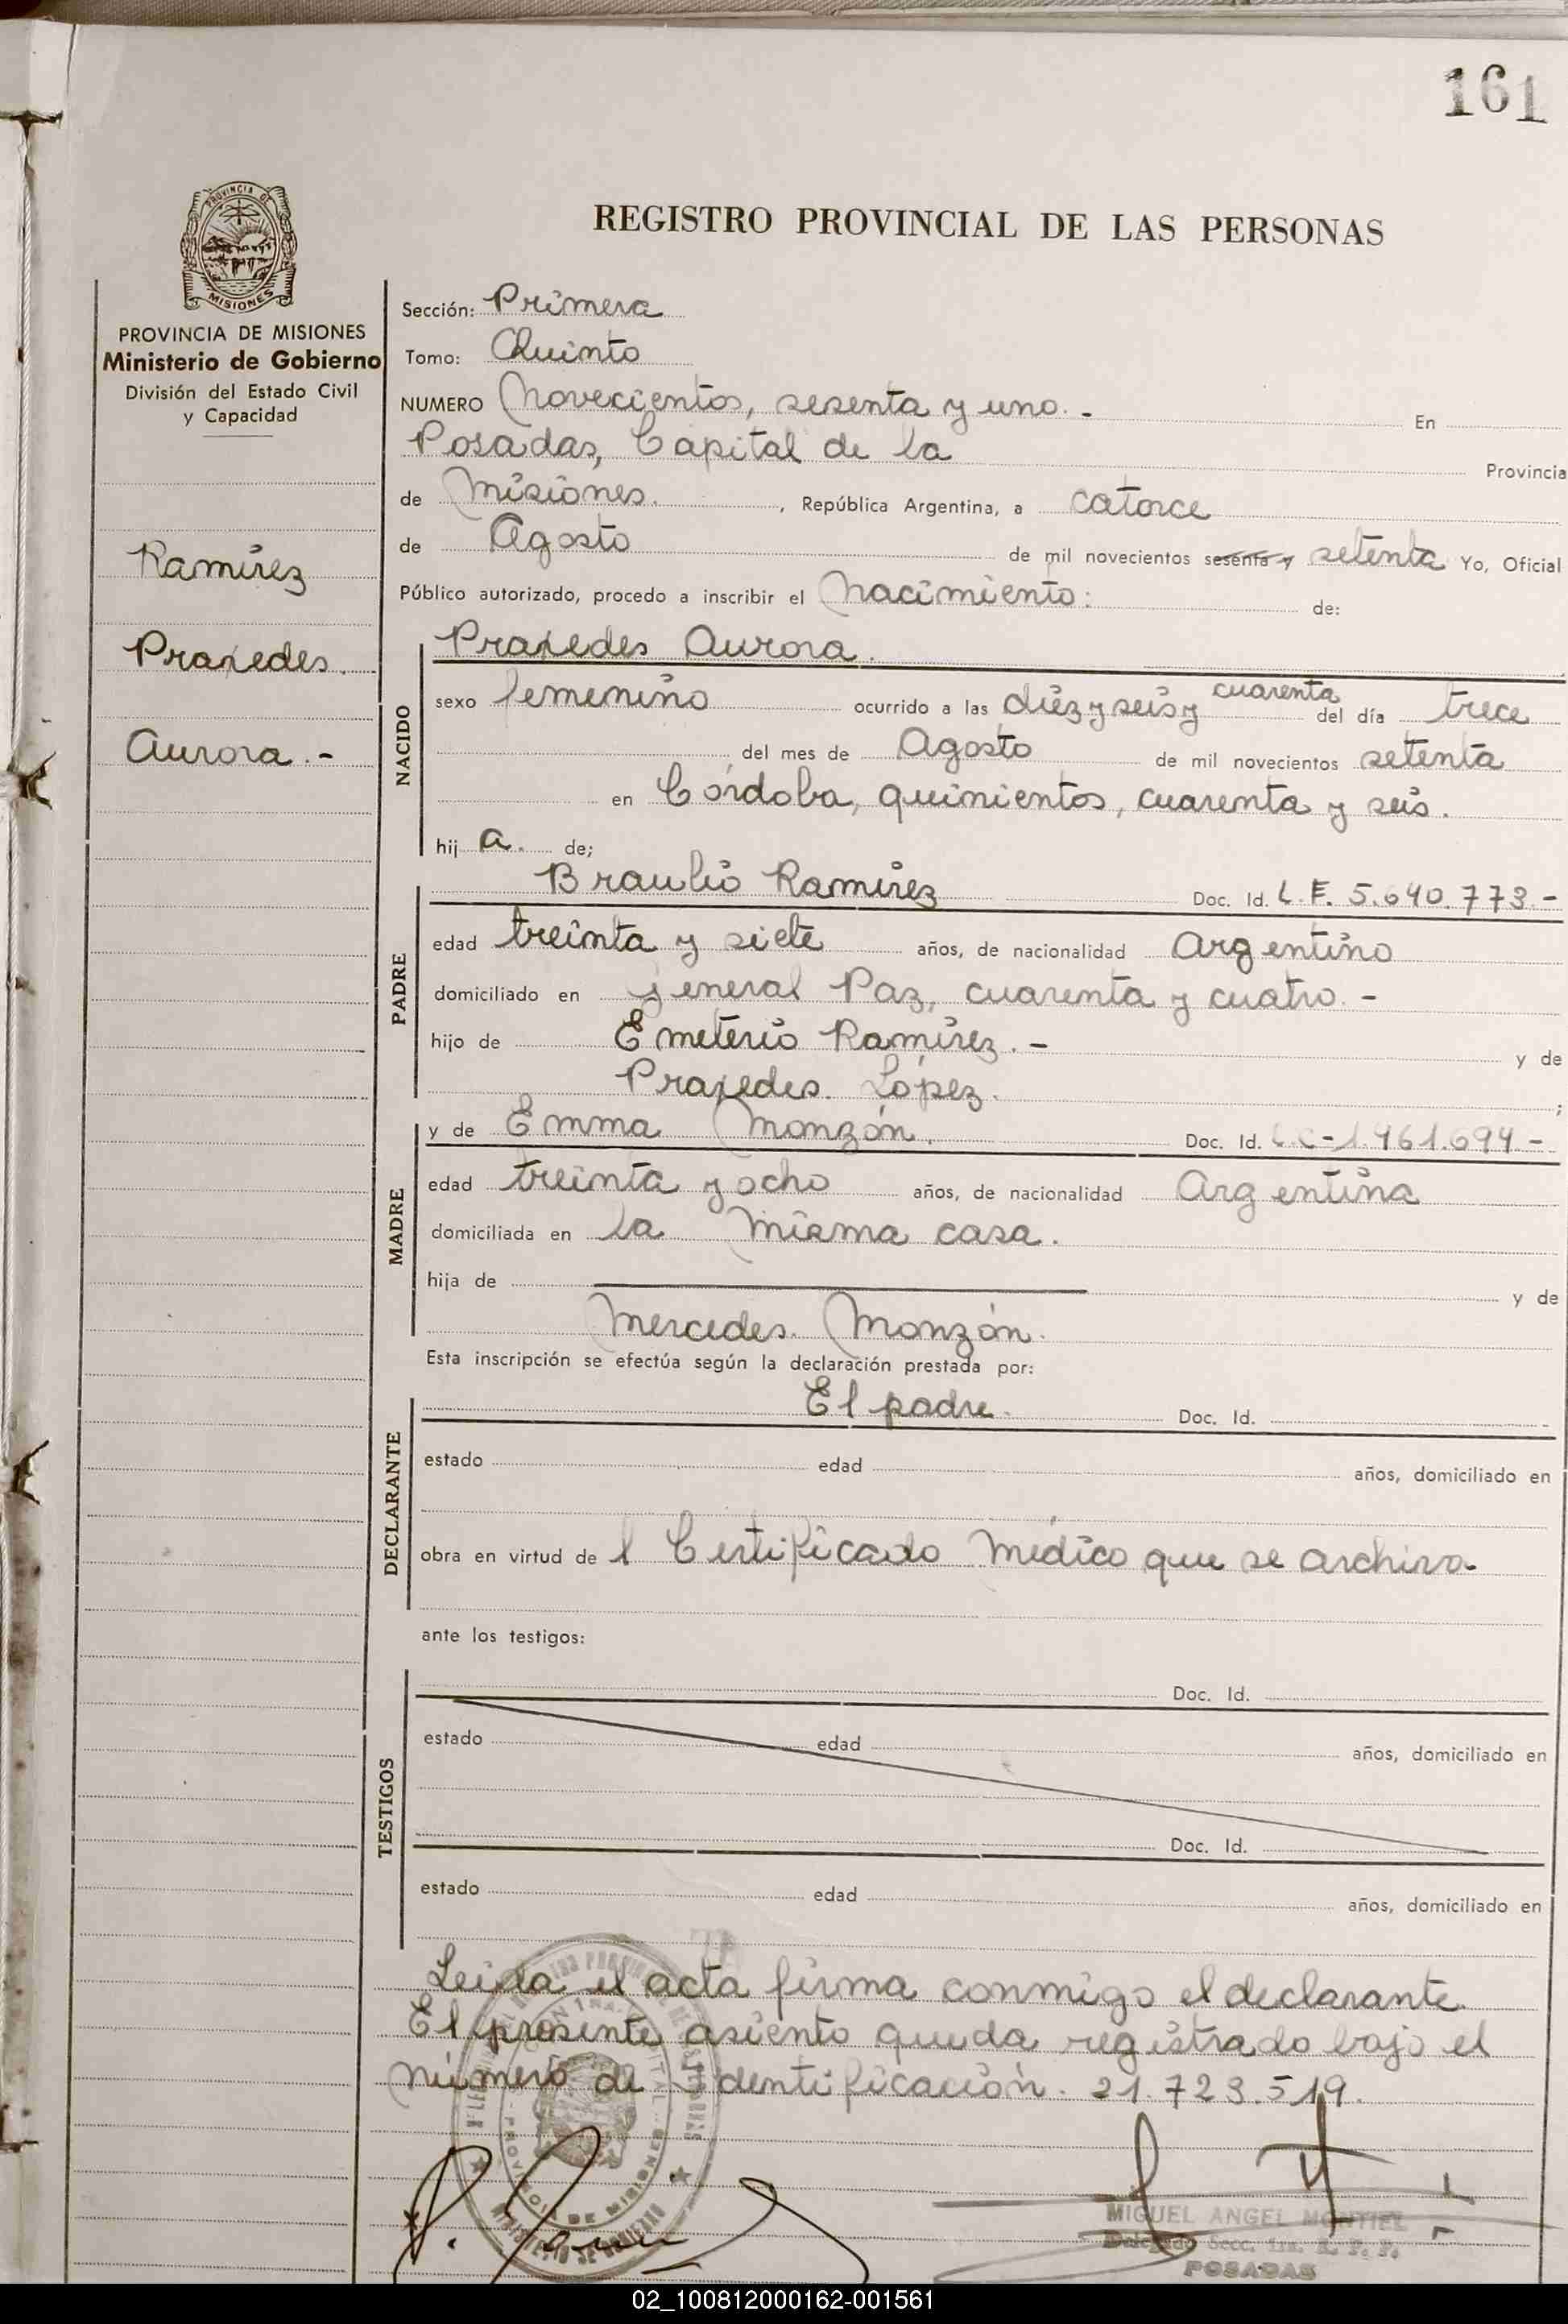 161
REGISTRO PROVINCIAL DE LAS PERSONAS
PROVINCIA DE
MISIONES
PROVINCIA DE MISIONES
Ministerio de Gobierno
División del Estado Civil
y Capacidad
Ramírez
Praxedes.
Aurora.-
Sección: Primera
Tomo: Quinto
NUMERO Novecientos, sesenta y uno.- En
Posadas, Capital de la Provincia
de Misiones. , República Argentina, a catorce
de Agosto de mil novecientos sesenta y setenta Yo, Oficial
Público autorizado, procedo a inscribir el Nacimiento: de:
NACIDO
Praxedes Aurora.
sexo femenino ocurrido a las diez y seis y cuarenta del día trece
del mes de Agosto de mil novecientos setenta
en Córdoba, quinientos, cuarenta y seis.
hij a. de;
PADRE
Braulio Ramírez Doc. Id. L.E. 5.640.773.-
edad treinta y siete años, de nacionalidad Argentino
domiciliado en General Paz, cuarenta y cuatro.-
hijo de Emeterio Ramírez.- y de
Praxedes. López. ;
MADRE
y de Emma Monzón. Doc. Id. L.C-1.961.694-
edad treinta y ocho años, de nacionalidad Argentina
domiciliada en la misma casa.
hija de y de
Mercedes. Monzón.
Esta inscripción se efectúa según la declaración prestada por:
DECLARANTE
El padre. Doc. Id.
estado edad años, domiciliado en
obra en virtud de l Certificado Médico que se archiva
ante los testigos:
TESTIGOS
Doc. Id.
estado edad años, domiciliado en
Doc. Id.
estado edad años, domiciliado en
Leída el acta firma conmigo el declarante
El presente asiento queda registrado bajo el
número de Identificación. 21.723.519.
PROVINCIA DE MISIONES
MINISTERIO DE GOBIERNO
MIGUEL ANGEL MONTIEL
Delegado Secc. 1ra. R. P. P.
POSADAS
02_100812000162-001561